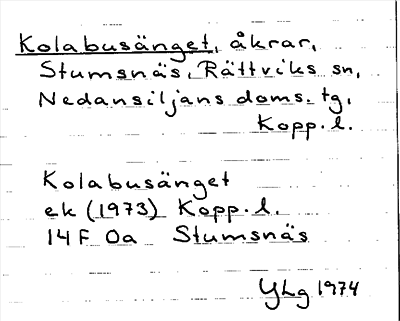 Kolabusänget, åkrar,
Stumsnäs, Rättviks sn,
Nedansiljans doms. tg,
Kopp. l.
Kolabusänget
ek (1973) Kopp. l.
14 F 0a Stumsnäs
YLg 1974